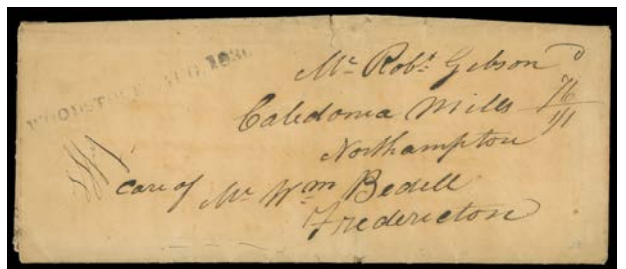 WOODSTOCK AUG. 183
Mr. Robt Gibson
Caledonia Mills
Northampton
care of Mr. Wm Bedell
Fredericton